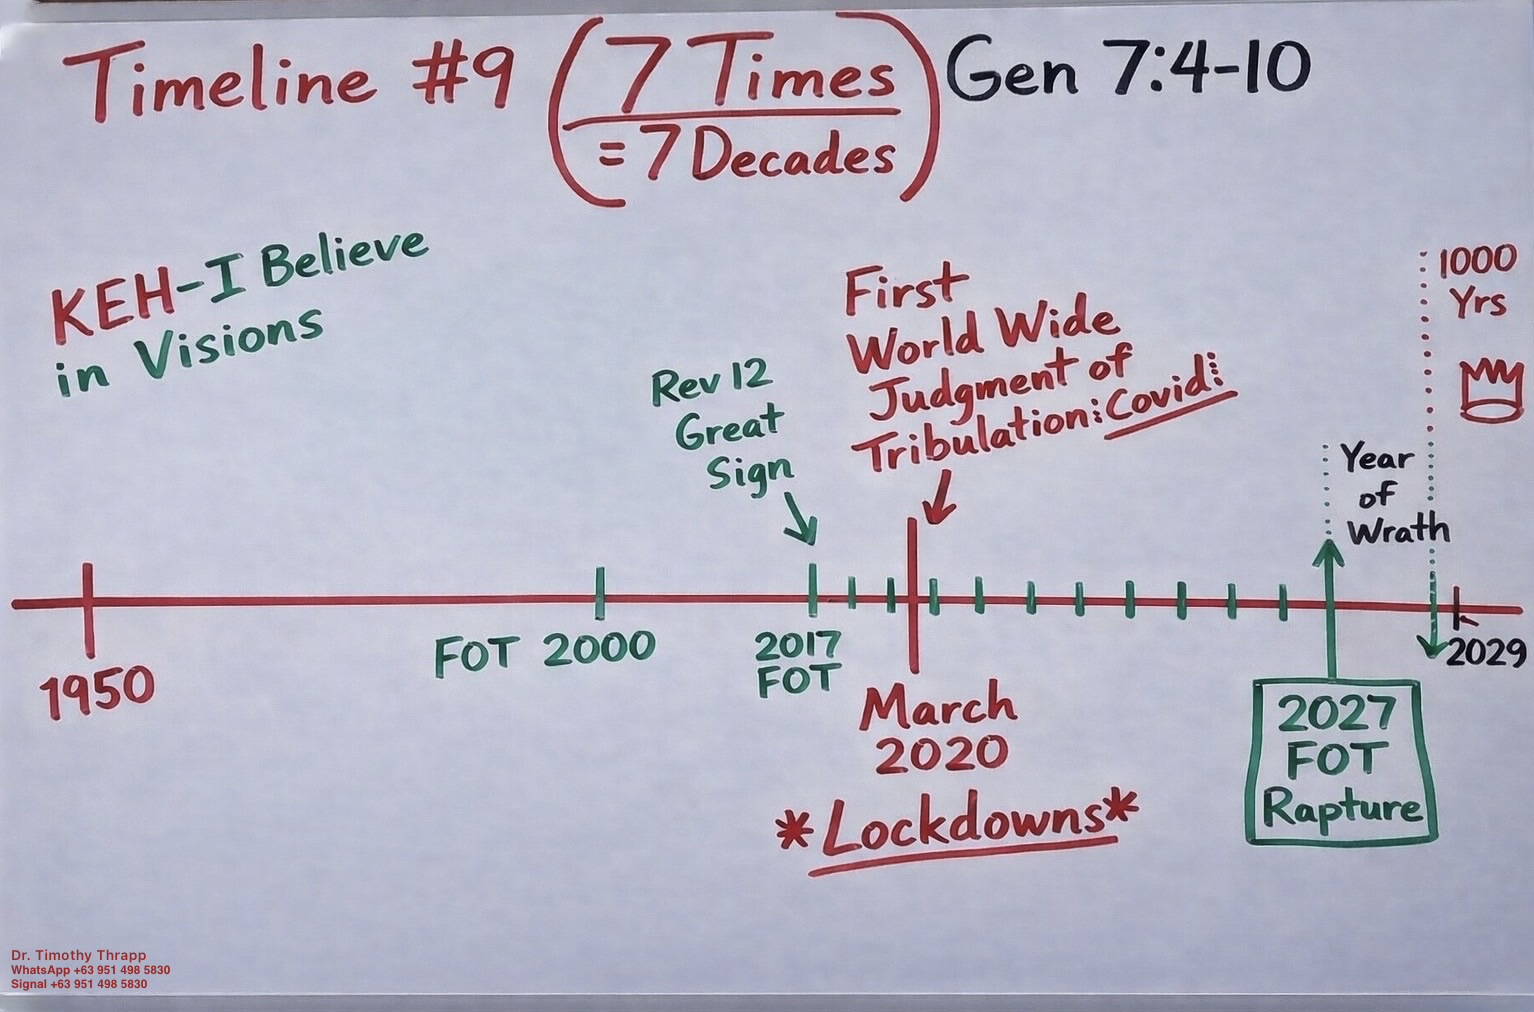 Timeline #9 (7 Times Gen 7:4-10
= 7 Decades)
KEH-I Believe
in Visions
Rev 12
Great
Sign
First
World Wide
Judgment of
Tribulation: Covid:
1000
Yrs
Year
of
Wrath
1950
FOT 2000
2017
FOT
March
2020
*Lockdowns*
2027
FOT
Rapture
2029
Dr. Timothy Thrapp
WhatsApp +63 951 498 5830
Signal +63 951 498 5830